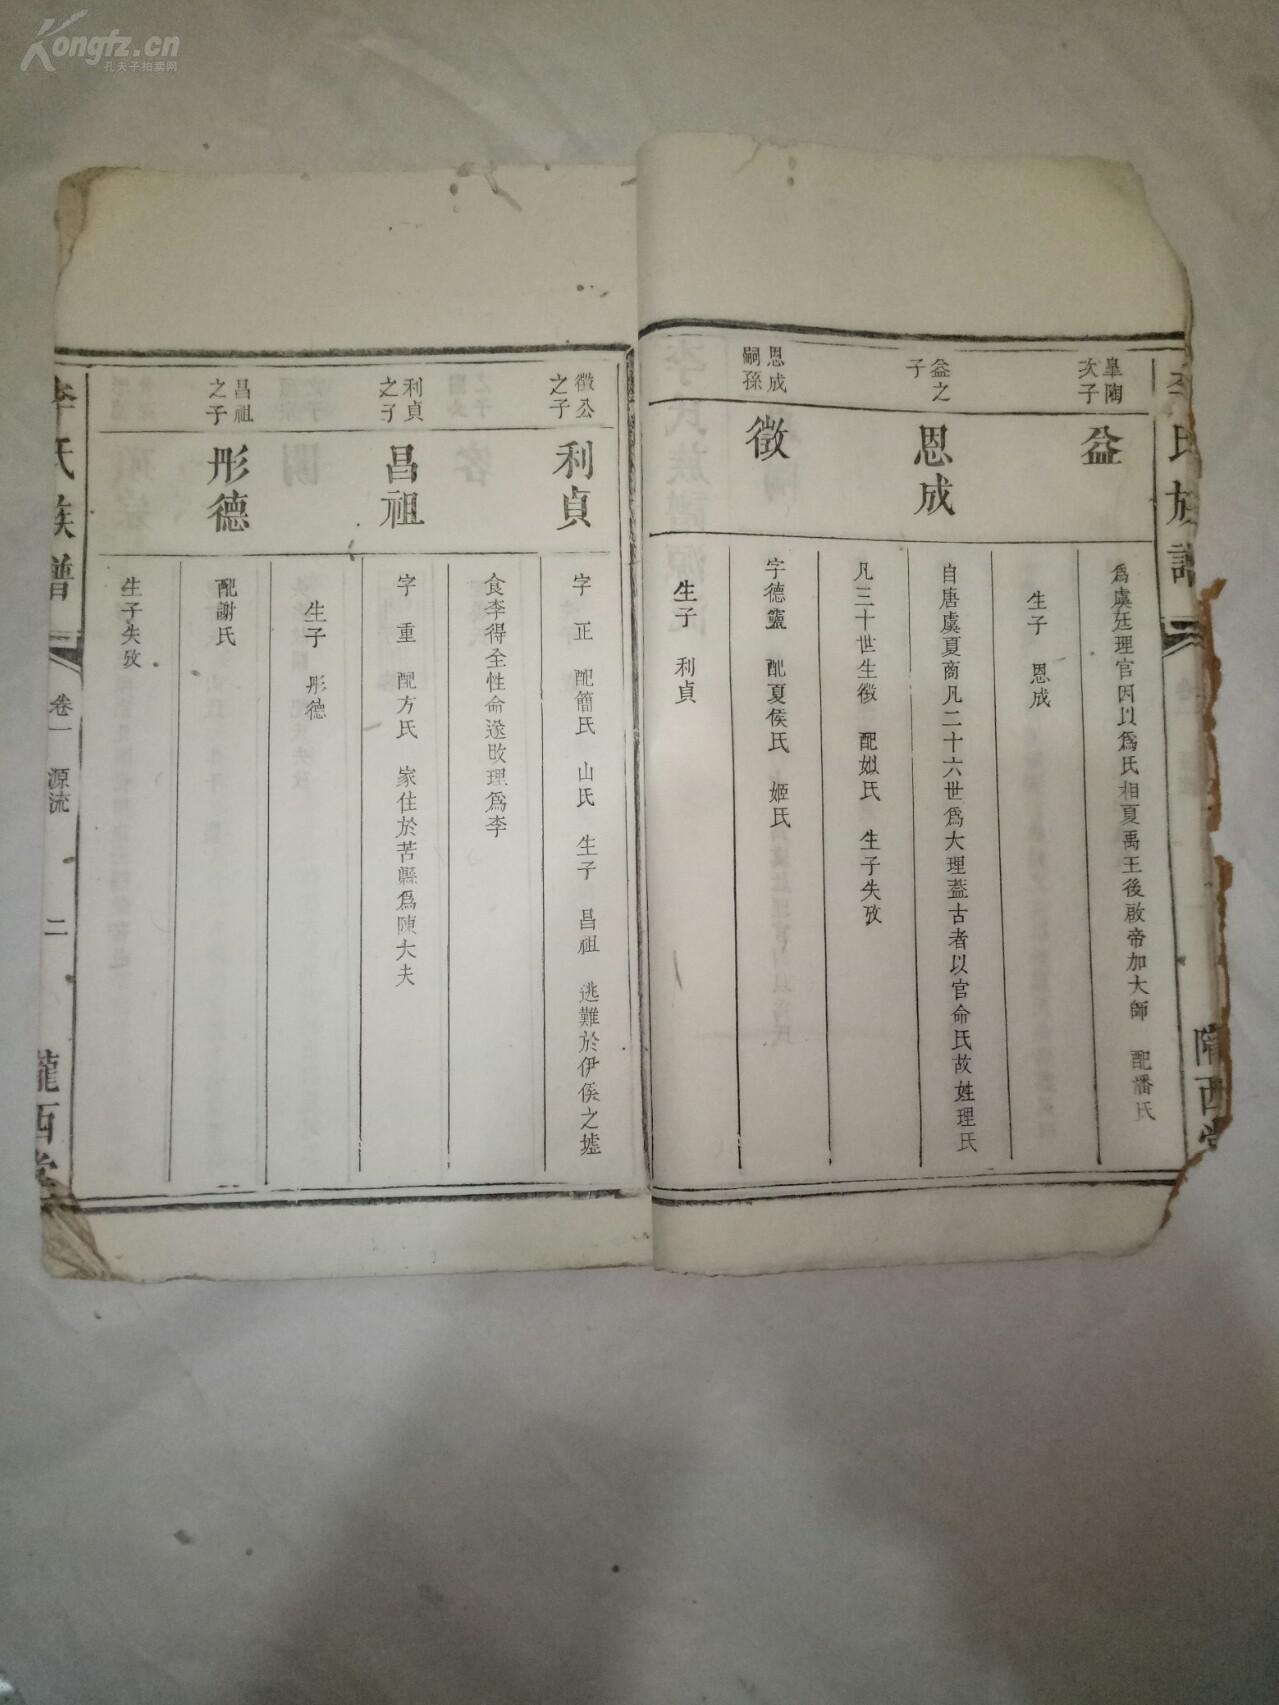 Kongfz.cn
孔夫子拍卖网
李氏族譜
隴西堂
皋陶
次子
益
爲虞廷理官因以爲氏相夏禹王後啟帝加大師　配潘氏
生子　恩成
益之
子
恩成
自唐虞夏商凡二十六世爲大理葢古者以官命氏故姓理氏
凡三十世生徵　配姒氏　生子失攷
恩成
嗣孫
徵
字德靈　配夏侯氏　姬氏
生子　利貞
徵公
之子
利貞
字　正　配簡氏　山氏　生子　昌祖　逃難於伊侯之墟
食李得全性命遂改理爲李
利貞
之子
昌祖
字　重　配方氏　家住於苦縣爲陳大夫
生子　彤德
昌祖
之子
彤德
配謝氏
生子失攷
李氏族譜
卷一　源流
二
隴西堂